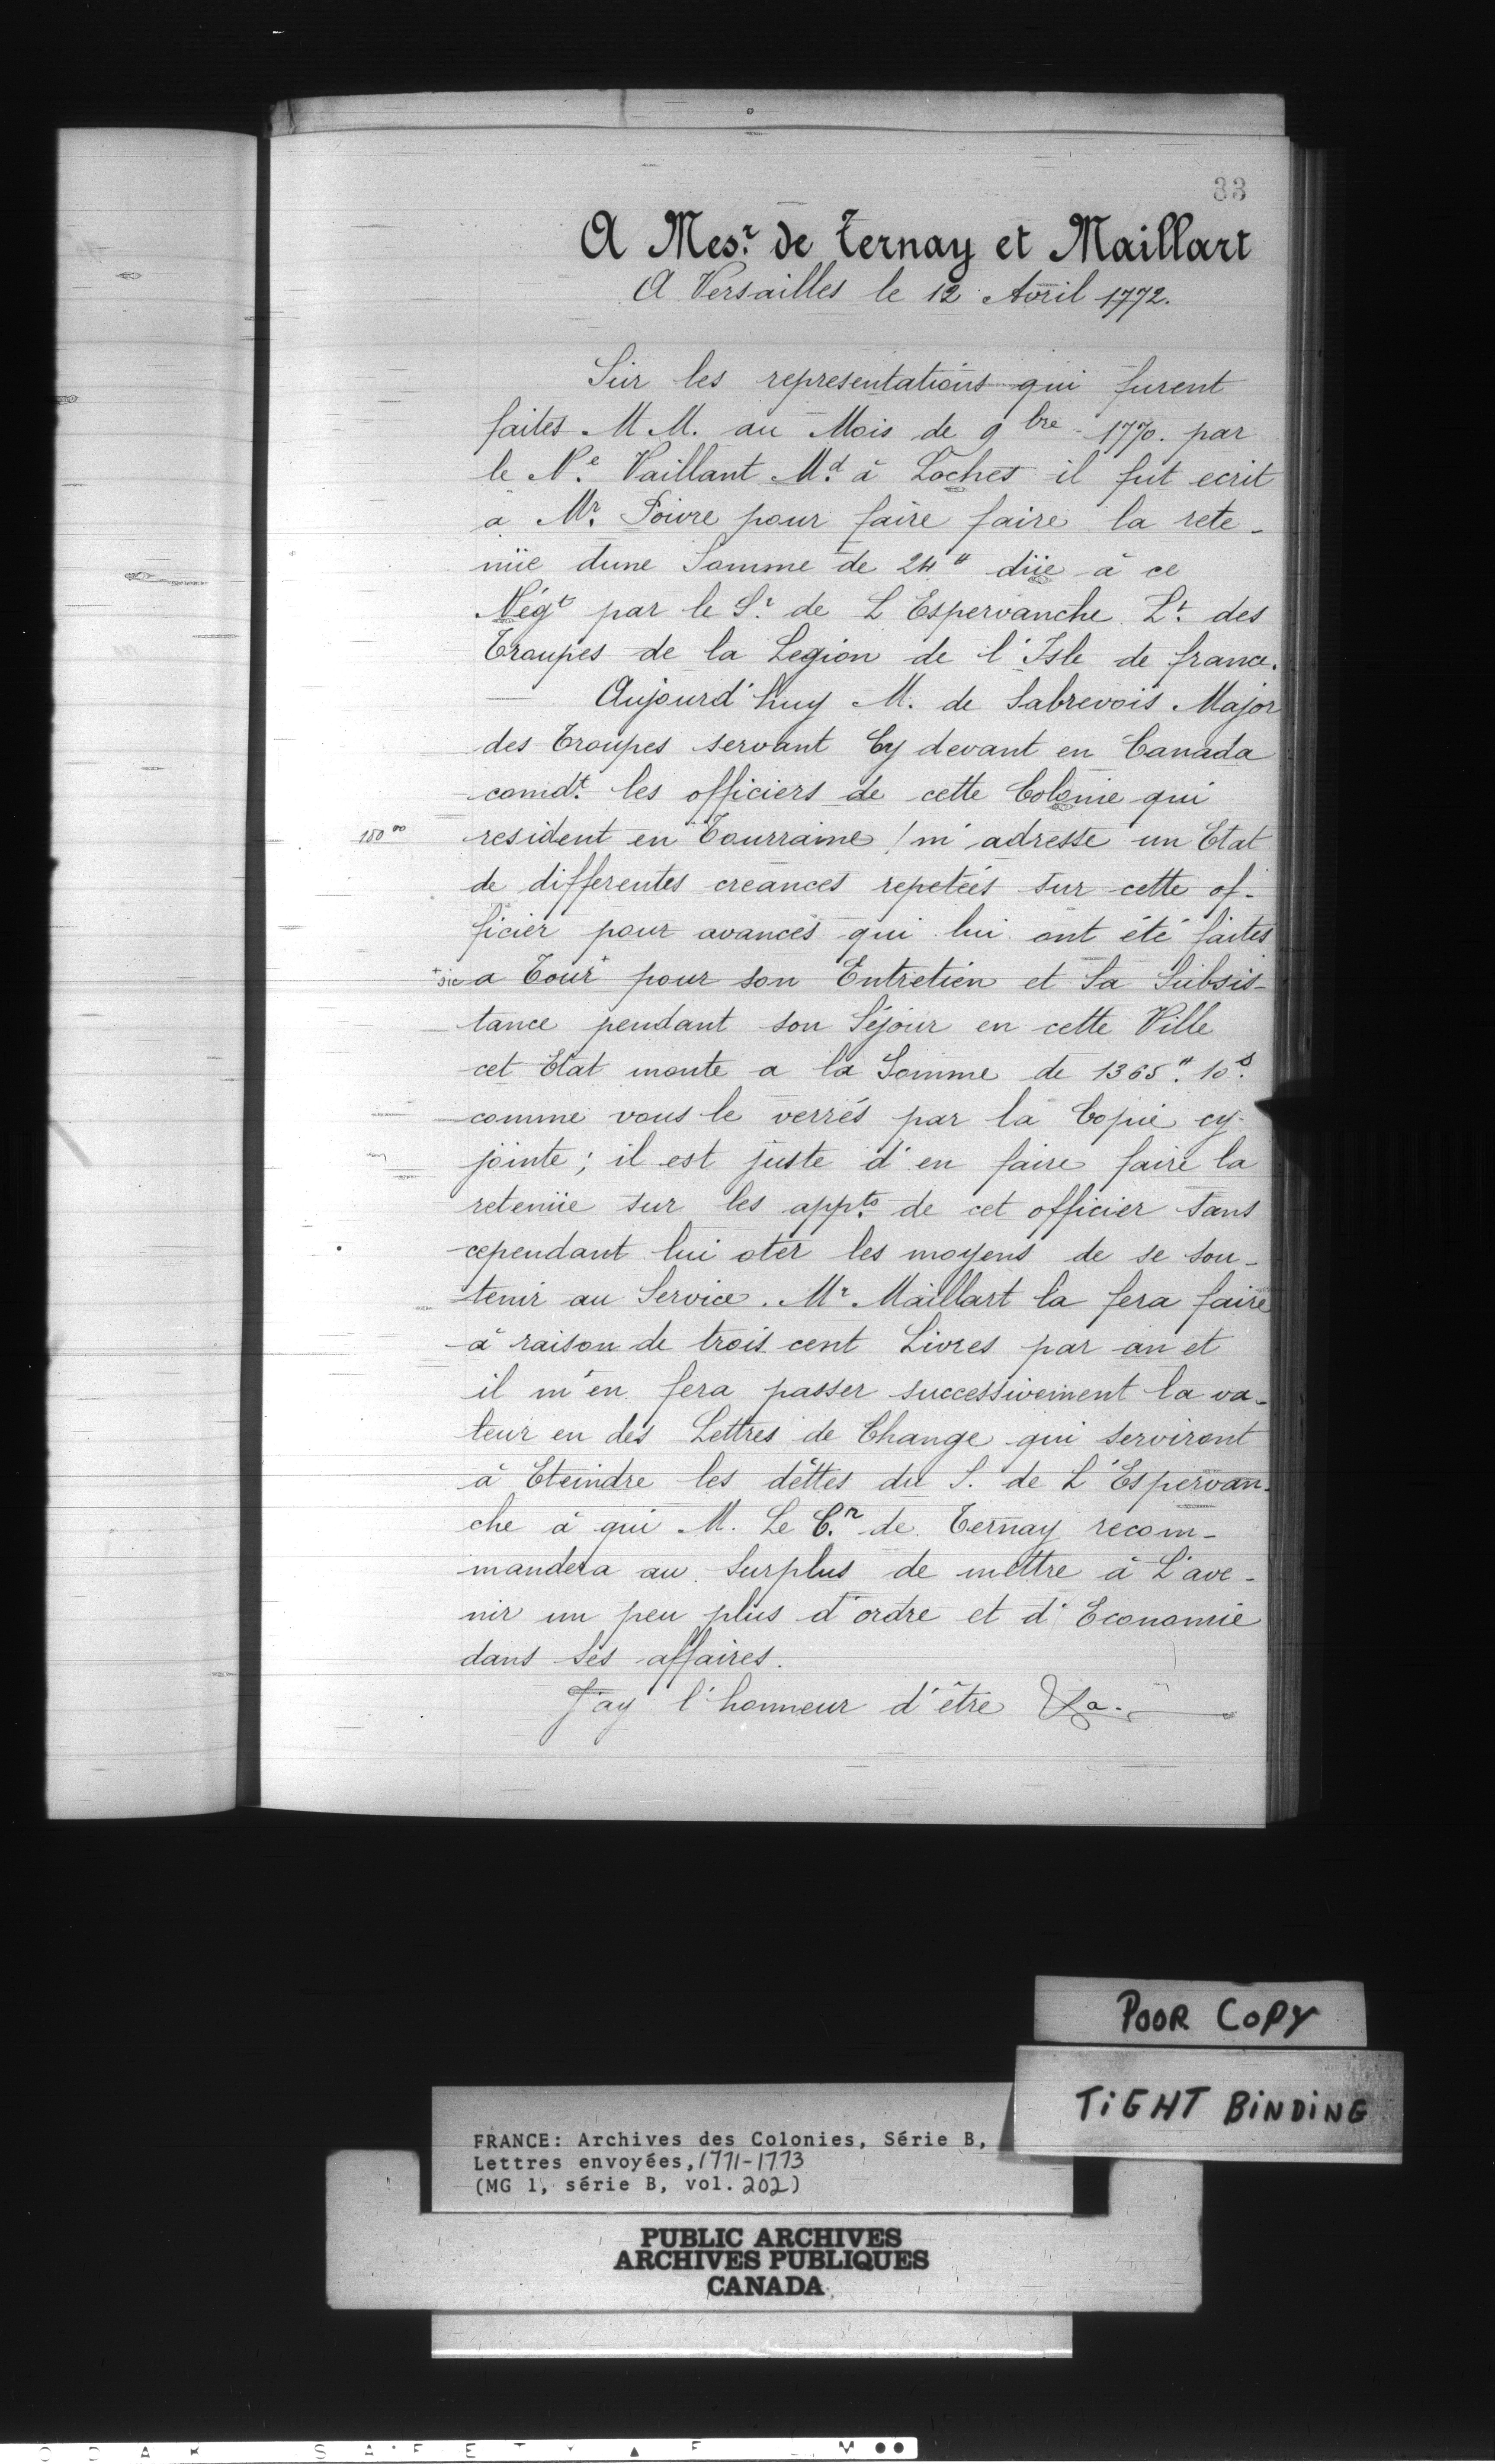 33
A Mes.r de Ternay et Maillart
A Versailles le 12 Avril 1772.
Sur les representations qui furent
faites M M. au Mois de 9 bre 1770. par
le N.e Vaillant M.d à Loches il fut ecrit
a Mr. Poivre pour faire faire la rete-
nüe dune Somme de 24" düe à ce
Négt par le S.r de L'Espervanche Lt. des
Troupes de la Legion de l'Isle de france.
Aujourd'huy M. de Sabrevois Major
des Troupes servant Cy devant en Canada
comdt. les officiers de cette Colonie qui
150 00 resident en Tourraine / m'adresse un Etat
de differentes creances repetées sur cette of-
ficier pour avances qui lui ont été faites
+sic a Tour+ pour son Entretien et Sa Subsis-
tance pendant son Séjour en cette Ville
cet Etat monte a la Somme de 1365." 10s.
comme vous le verrés par la Copie cy-
jointe; il est juste d'en faire faire la
retenüe sur les appts. de cet officier sans
cependant lui oter les moyens de se sou-
tenir au Service. Mr. Maillart la fera faire
à raison de trois cent Livres par an et
il m'en fera passer successivement la va-
leur en des Lettres de Change qui serviront
à Eteindre les dêttes du S. de L'Espervan-
che à qui M. Le C.er de Ternay recom-
mandera au Surplus de mettre à L'ave-
nir un peu plus d'ordre et d'Economie
dans Ses affaires.
J'ay l'honneur d'être &a.
POOR COPY
TIGHT BINDING
FRANCE: Archives des Colonies, Série B,
Lettres envoyées, 1771-1773
(MG 1, série B, vol. 202)
PUBLIC ARCHIVES
ARCHIVES PUBLIQUES
CANADA